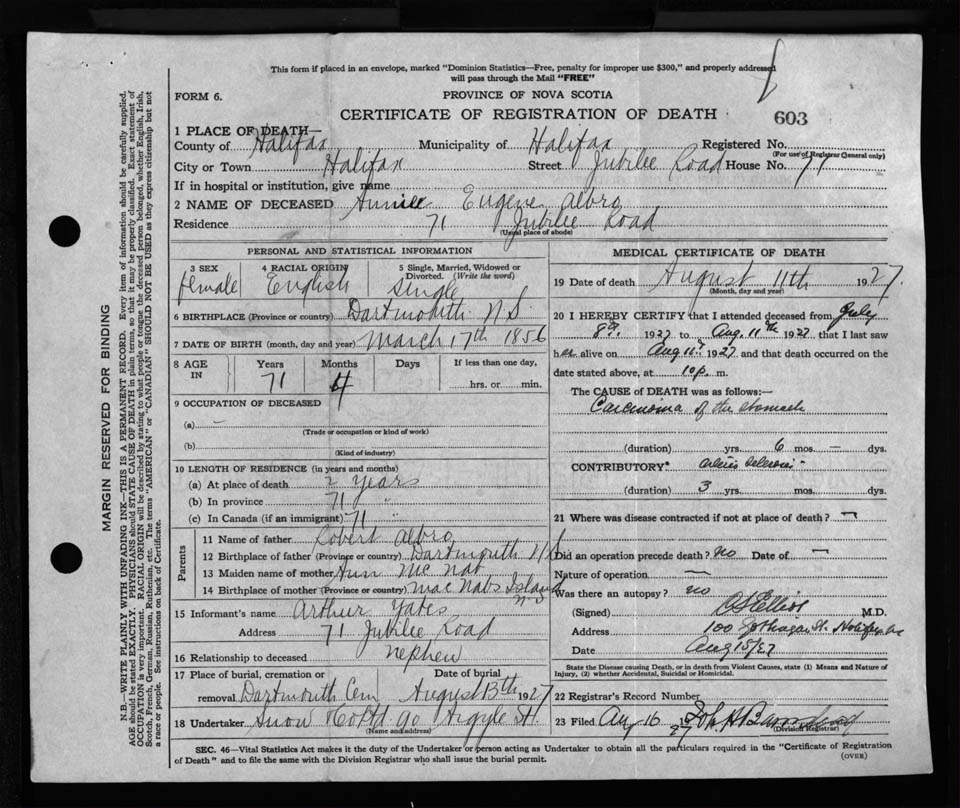 This form if placed in an envelope, marked "Dominion Statistics—Free, penalty for improper use $300," and properly addressed
will pass through the Mail "FREE"
FORM 6.
PROVINCE OF NOVA SCOTIA
CERTIFICATE OF REGISTRATION OF DEATH
603
1 PLACE OF DEATH—
County of Halifax Municipality of Halifax Registered No.
(For use of Registrar General only)
City or Town Halifax Street Jubilee Road House No. 71
If in hospital or institution, give name
2 NAME OF DECEASED Annie Eugene Albro
Residence 71 Jubilee Road
(Usual place of abode)
PERSONAL AND STATISTICAL INFORMATION
3 SEX 4 RACIAL ORIGIN 5 Single, Married, Widowed or Divorced. (Write the word)
female English Single
6 BIRTHPLACE (Province or country) Dartmouth N.S.
7 DATE OF BIRTH (month, day and year) March 17th 1856
8 AGE IN Years Months Days If less than one day,
71 4 hrs. or min.
9 OCCUPATION OF DECEASED
(a) –
(Trade or occupation or kind of work)
(b)
(Kind of industry)
10 LENGTH OF RESIDENCE (in years and months)
(a) At place of death 2 years
(b) In province 71 "
(c) In Canada (if an immigrant) 71 "
Parents
11 Name of father Robert Albro
12 Birthplace of father (Province or country) Dartmouth N.S.
13 Maiden name of mother Ann Mc Nab
14 Birthplace of mother (Province or country) Mac Nabs Island N-S
15 Informant's name Arthur Yates
Address 71 Jubilee Road
16 Relationship to deceased nephew
17 Place of burial, cremation or removal Dartmouth Cem Date of burial August 13th 1927
18 Undertaker Snow & Co Ltd 90 Argyle St.
(Name and address)
MEDICAL CERTIFICATE OF DEATH
19 Date of death August 11th 1927.
(Month, day and year)
20 I HEREBY CERTIFY that I attended deceased from July
8th 1927 to Aug. 11th 1927, that I last saw
her alive on Aug 11th 1927 and that death occurred on the
date stated above, at 10 p. m.
The CAUSE OF DEATH was as follows:—
Carcinoma of the stomach
(duration) yrs. 6 mos — dys.
CONTRIBUTORY: arterio sclerosis
(duration) 3 yrs. mos. dys.
21 Where was disease contracted if not at place of death? —
Did an operation precede death? no Date of —
Nature of operation —
Was there an autopsy? no
(Signed) Elliot M.D.
Address 100 St.
Date Aug 15/27
State the Disease causing Death, or in death from Violent Causes, state (1) Means and Nature of
Injury, (2) whether Accidental, Suicidal or Homicidal.
22 Registrar's Record Number
23 Filed Aug 16 1927 John A
(Division Registrar)
SEC. 46—Vital Statistics Act makes it the duty of the Undertaker or person acting as Undertaker to obtain all the particulars required in the "Certificate of Registration
of Death" and to file the same with the Division Registrar who shall issue the burial permit.
(OVER)
MARGIN RESERVED FOR BINDING
N.B.—WRITE PLAINLY WITH UNFADING INK—THIS IS A PERMANENT RECORD. Every item of information should be carefully supplied.
AGE should be stated EXACTLY. PHYSICIANS should STATE CAUSE OF DEATH in plain terms, so that it may be properly classified. Exact statement of
OCCUPATION is very important. RACIAL ORIGIN will be described by stating to what people or tongue the deceased person belonged, whether English, Irish,
Scotch, French, German, Russian, Ruthenian, etc. The terms "AMERICAN" or "CANADIAN" SHOULD NOT BE USED as they express citizenship but not
a race or people. See instructions on back of Certificate.